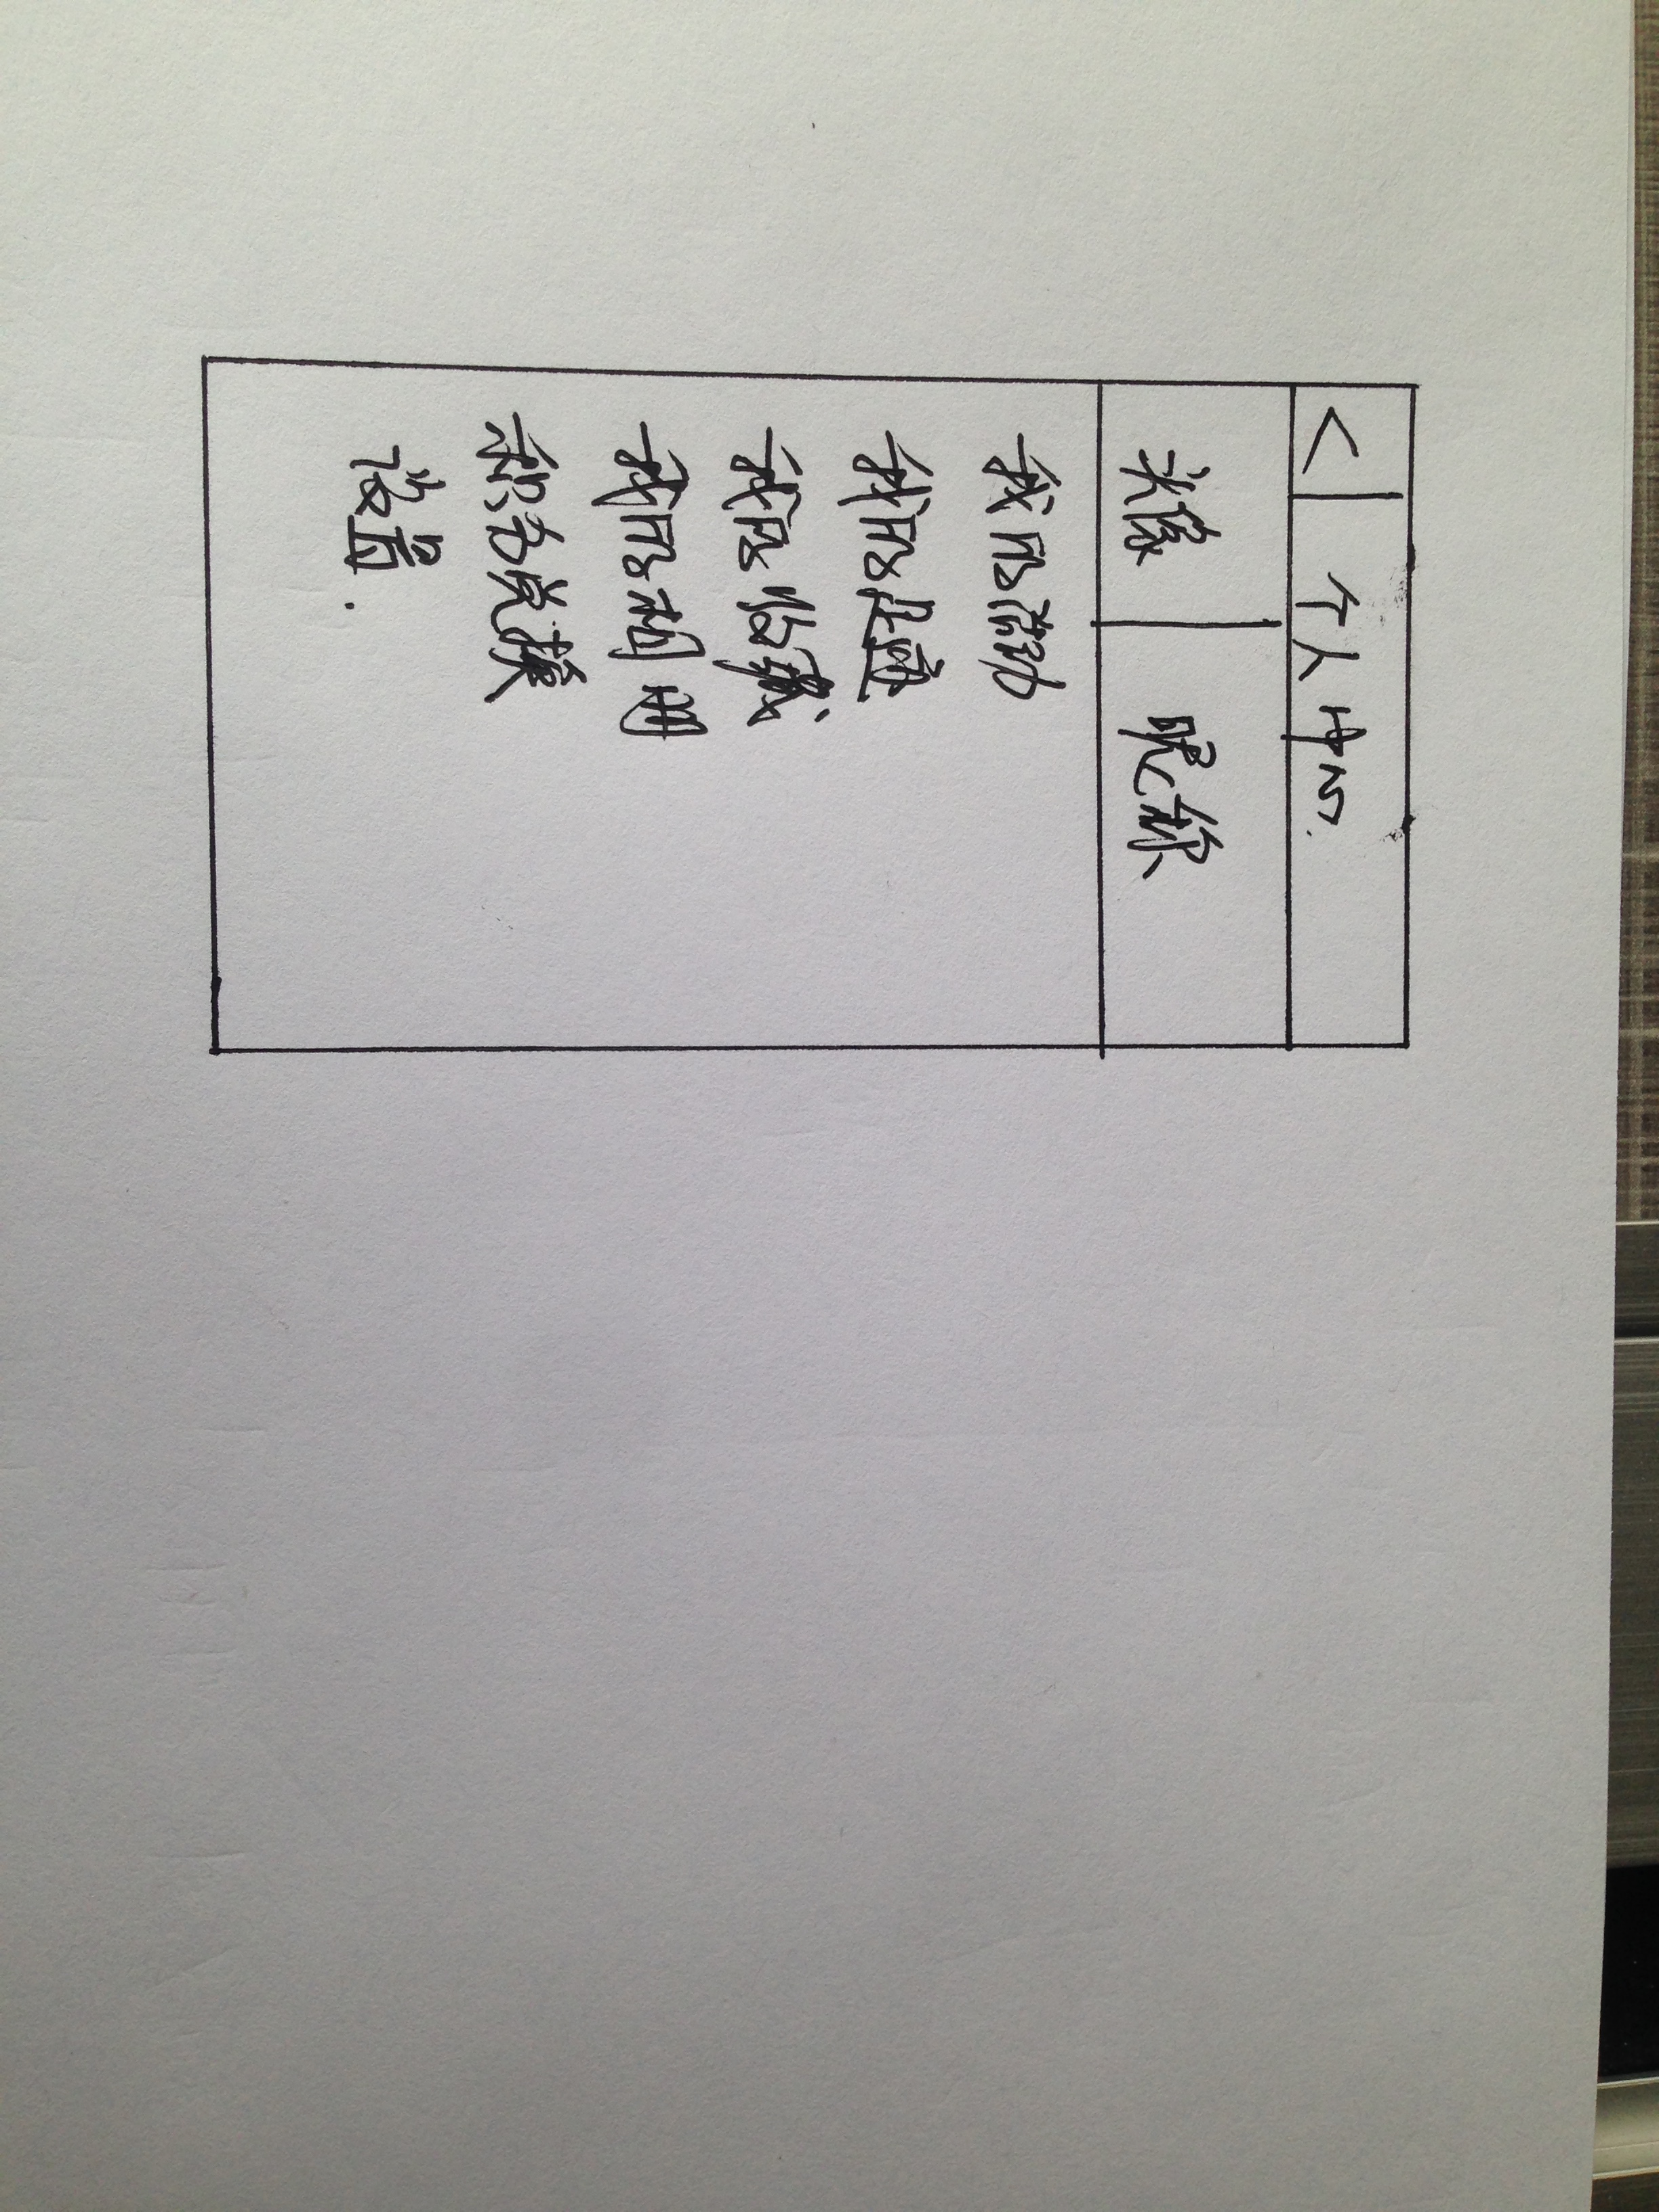 < 个人中心.
头像 昵称
我的
我的
我的收藏
我的相册
积分兑换
设置.